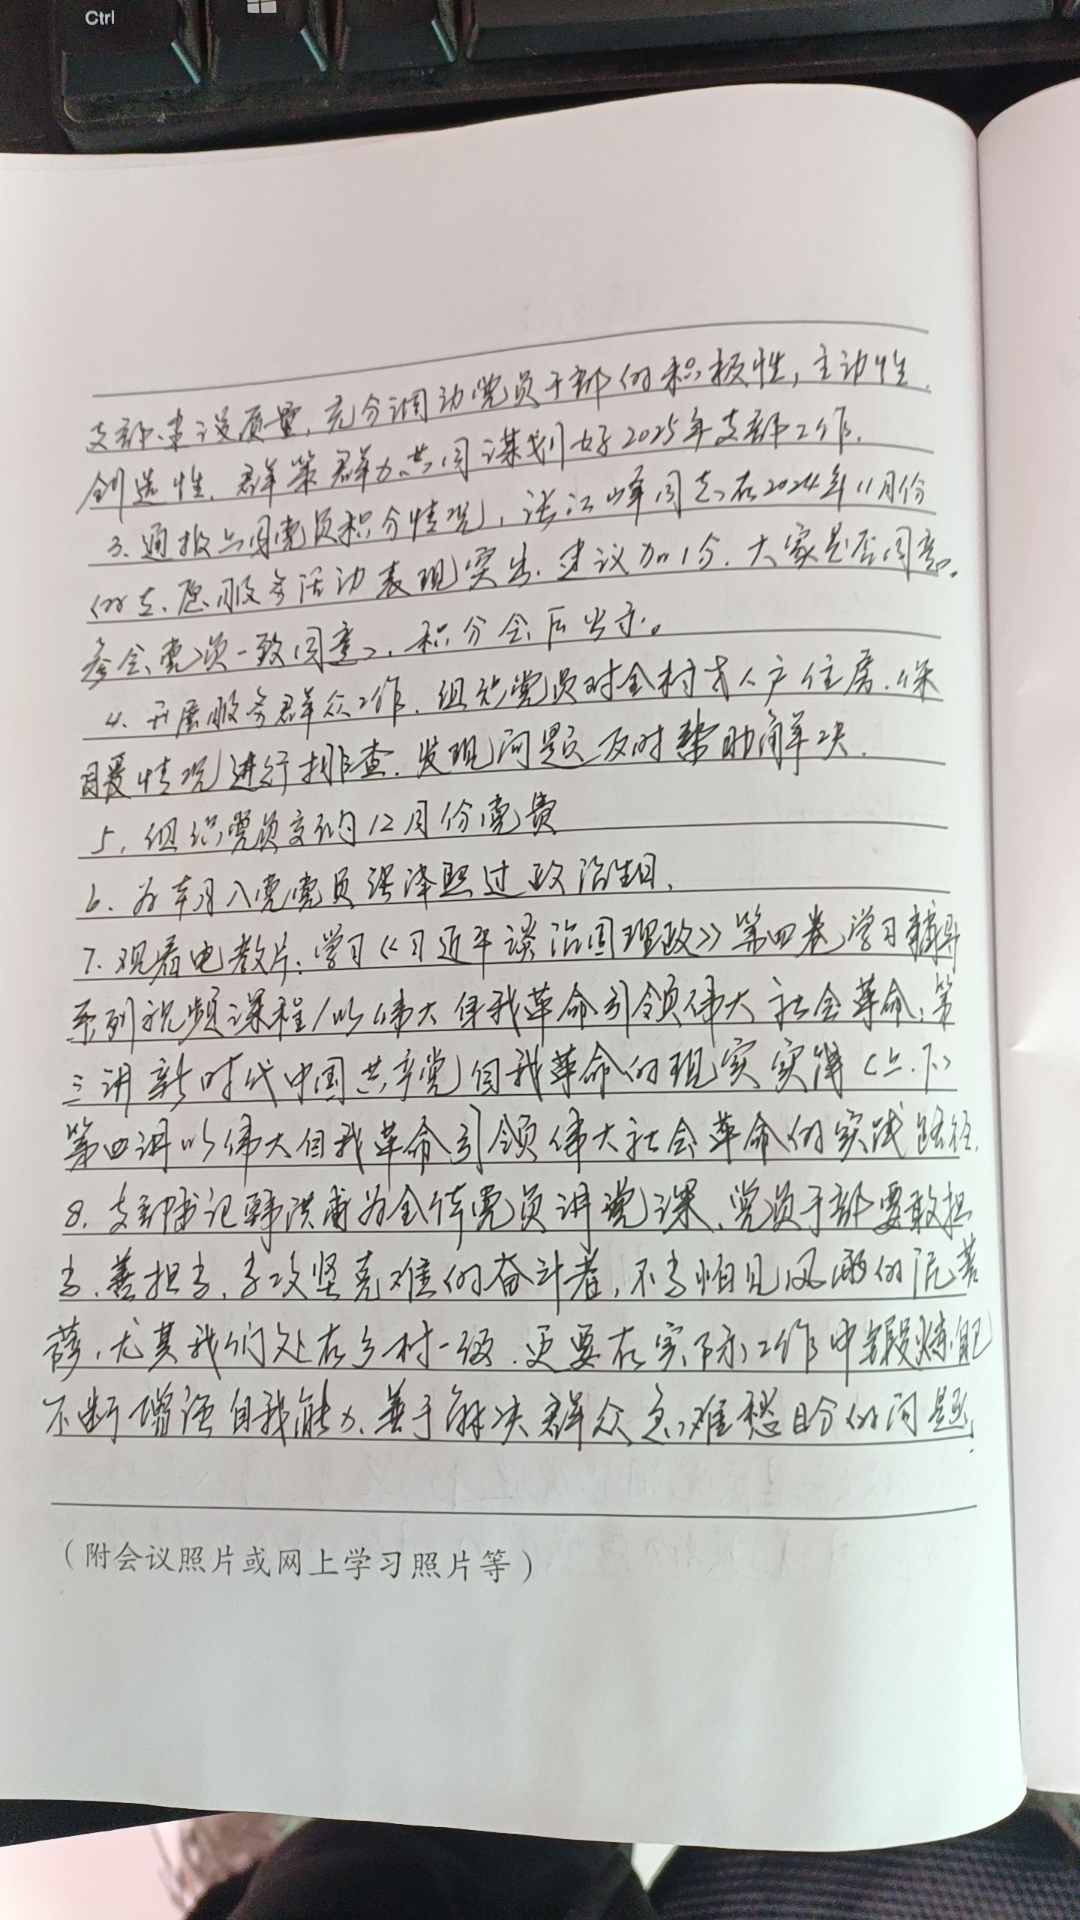 Ctrl
支部建设质量，充分调动党员干部的积极性，主动性
创造性，群策群力共同谋划好2025年支部工作。
3、通报上月党员积分情况，张江峰同志在2024年11月份
的志愿服务活动表现突出，建议加1分，大家是否同意。
参会党员一致同意，积分会后公示。
4、开展服务群众工作，组织党员对全村老人户住房、保
暖情况进行排查，发现问题及时帮助解决。
5、组织党员交纳12月份党费
6、为本月入党党员 泽熙过政治生日。
7、观看电教片：学习《习近平谈治国理政》第四卷学习辅导
系列视频课程/以伟大自我革命引领伟大社会革命：第
三讲新时代中国共产党自我革命的现实实践（上、下）
第四讲以伟大自我革命引领伟大社会革命的实践路径。
8、支部书记韩洪 为全体党员讲党课，党员干部要敢担
当、善担当，争攻坚克难的奋斗者，不当怕见风雨的泥菩
萨，尤其我们处在乡村一级，更要在实际工作中锻炼自己
不断增强自我能力，善于解决群众急难愁盼的问题。
（附会议照片或网上学习照片等）